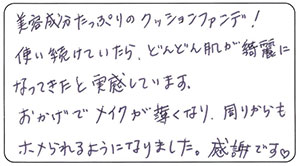 美容成分たっぷりのクッションファンデ!
使い続けていたら、どんどん肌が綺麗に
なってきたと実感しています。
おかげでメイクが薄くなり、周りからも
ホメられるようになりました。感謝です♡